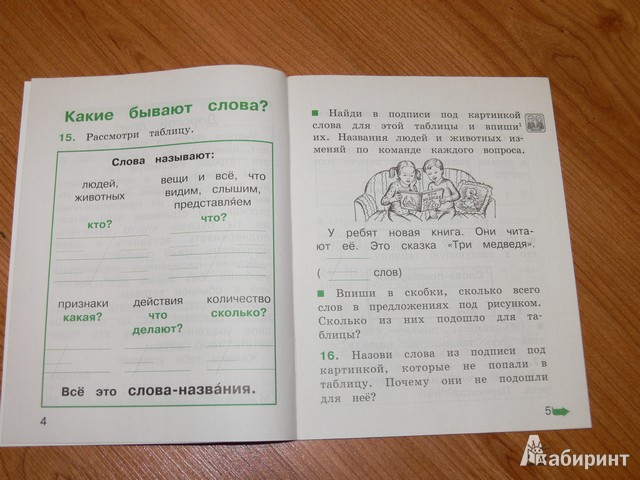 Какие бывают слова?
15. Рассмотри таблицу.
Слова называют:
людей,
животных
кто?
вещи и всё, что
видим, слышим,
представляем
что?
признаки
какая?
действия
что
делают?
количество
сколько?
Всё это слова-назва́ния.
4
Найди в подписи под картинкой
слова для этой таблицы и впиши¹
их. Названия людей и животных из-
меняй по команде каждого вопроса.
У ребят новая книга. Они чита-
ют её. Это сказка «Три медведя».
( слов)
Впиши в скобки, сколько всего
слов в предложениях под рисунком.
Сколько из них подошло для та-
блицы?
16. Назови слова из подписи под
картинкой, которые не попали в
таблицу. Почему они не подошли
для неё?
5
Лабиринт